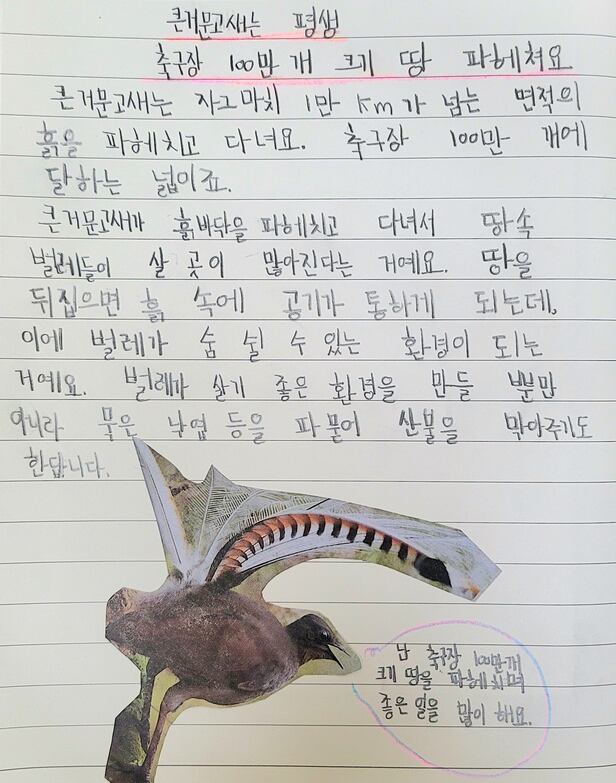 큰거문고새는 평생
축구장 100만 개 크기 땅 파헤쳐요
큰거문고새는 자그마치 1만 km가 넘는 면적의
흙을 파헤치고 다녀요. 축구장 100만 개에
달하는 넓이죠.
큰거문고새가 흙바닥을 파헤치고 다녀서 땅속
벌레들이 살 곳이 많아진다는 거예요. 땅을
뒤집으면 흙 속에 공기가 통하게 되는데,
이에 벌레가 숨 쉴 수 있는 환경이 되는
거예요. 벌레가 살기 좋은 환경을 만들 뿐만
아니라 묵은 낙엽 등을 파묻어 산불을 막아주기도
한답니다.
난 축구장 100만개
크기 땅을 파헤치며
좋은 일을 많이 해요.